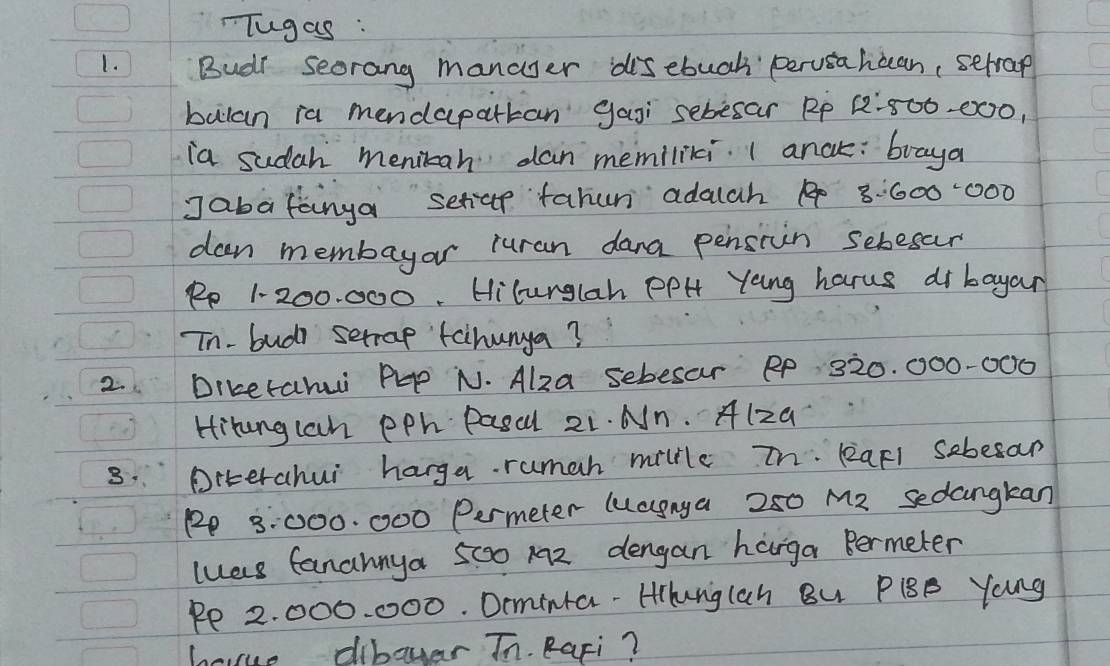 Tugas :
1. Budi Seorang manager disebuah perusahaan, setiap
bulan ia mendapatkan gaji sebesar Rp 12.500.000,
ia sudah menikah dan memiliki 1 anak. biaya
Jabatannya setiap tahun adalah Rp 3.600.000
dan membayar iuran dana pensiun sebesar
Rp 1.200.000. Hitunglah PPH Yang harus di bayar
Tn. budi setiap tahunya?
2. Diketahui PKP N. Alza sebesar RP 320.000.000
Hitunglah PPh Pasal 21. Nn. Alza
3. Diketahui harga rumah milik Tn. Rafi Sebesar
Rp 3.000.000 Permeter luasnya 250 M2 sedangkan
luas tanahnya 500 M2 dengan harga Permeter
Rp 2.000.000. Diminta - Hitunglah PBB Yang
harus dibayar Tn. Rafi?